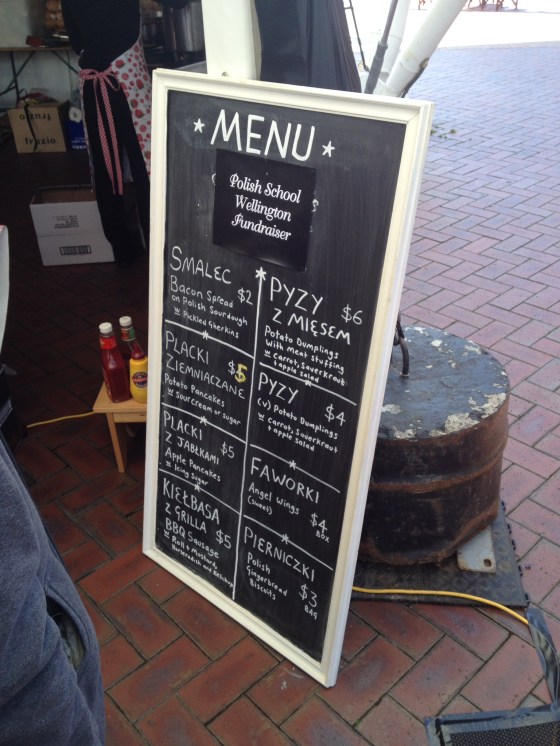 ★ MENU ★
Polish School
Wellington
Fundraiser
SMALEC $2
Bacon Spread
on Polish Sourdough
w Pickled Gherkins
PLACKI $5
ZIEMNIACZANE
Potato Pancakes
w sour cream or sugar
PLACKI
Z JABŁKAMI $5
Apple Pancakes
w Icing Sugar
KIEŁBASA
Z GRILLA $5
BBQ Sausage
w Roll & Mustard,
Horseradish and Ketchup
PYZY $6
Z MIĘSEM
Potato Dumplings
With meat stuffing
w Carrot, Sauerkraut
+ apple salad
PYZY $4
(v) Potato Dumplings
w Carrot, sauerkraut
+ apple salad
FAWORKI
Angel Wings
(sweet) $4
BOX
PIERNICZKI
Polish
Gingerbread $3
Biscuits BAG
frazio